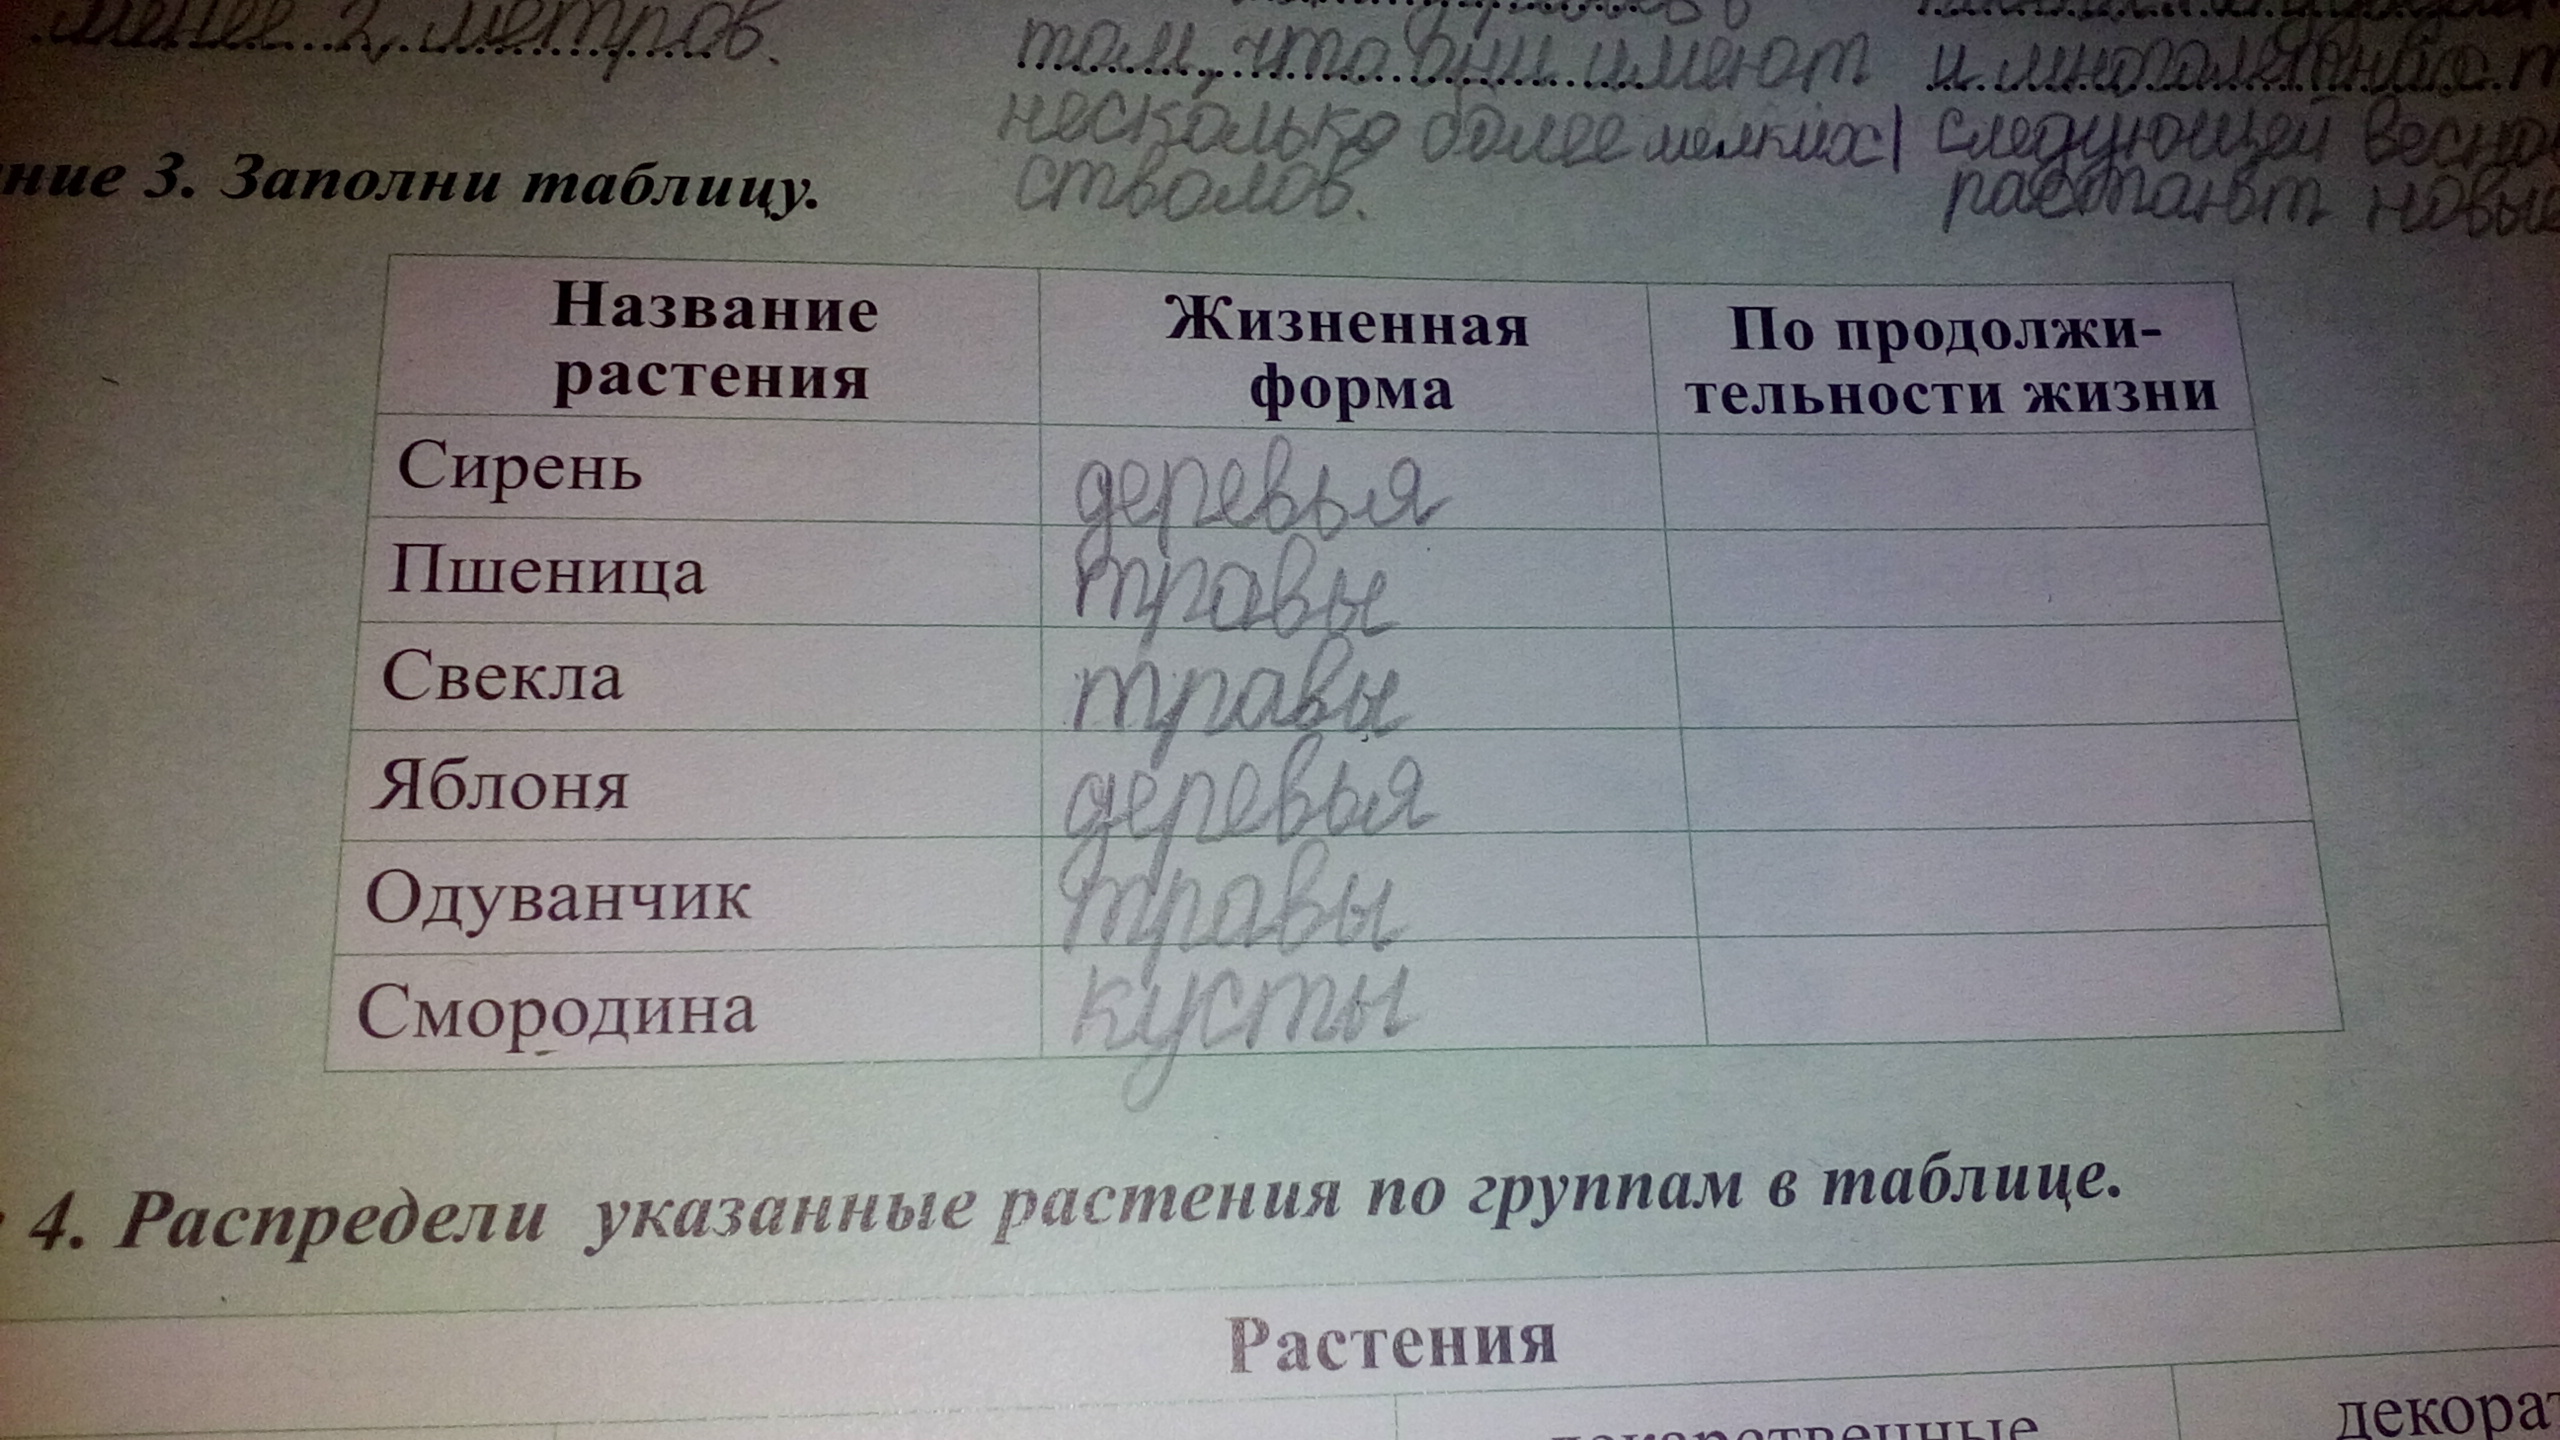 менее 2 метров.
том, что они имеют
и многолетних
несколько более мелких
следующей весно
стволов.
растают новые
ние 3. Заполни таблицу.
Название растения
Жизненная форма
По продолжи-
тельности жизни
Сирень деревья
Пшеница травы
Свекла травы
Яблоня деревья
Одуванчик травы
Смородина кусты
4. Распредели указанные растения по группам в таблице.
Растения
лекарственные
декорат